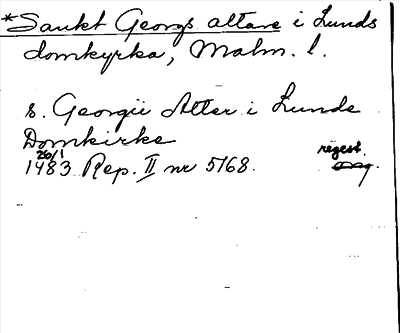 *Sankt Georgs altare i Lunds
domkyrka, Malm. l.
s. Georgii Alter i Lunde
Domkirke
26/1
1483 Rep. II nr 5168. regest.